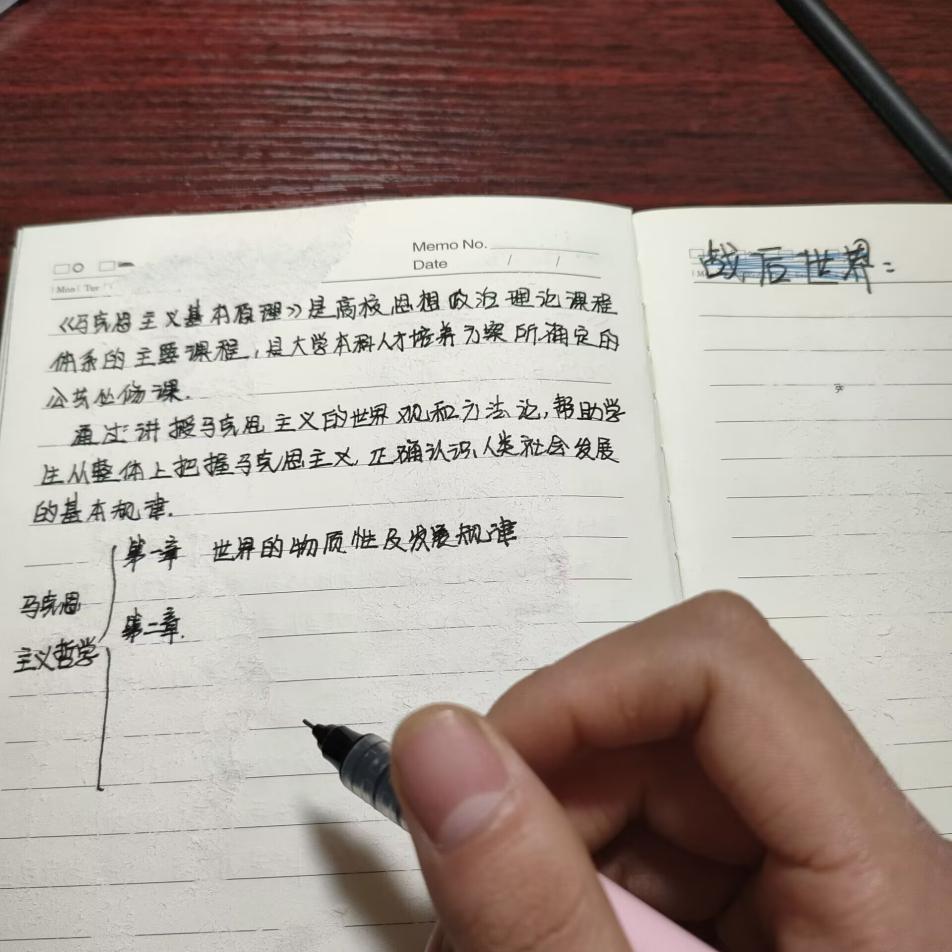 Memo No.
Date / /
Mon Tue
《马克思主义基本原理》是高校思想政治理论课程
体系的主要课程,是大学本科人才培养方案所确定的
公共必修课.
通过讲授马克思主义的世界观和方法论,帮助学
生从整体上把握马克思主义,正确认识人类社会发展
的基本规律.
第一章 世界的物质性及发展规律
马克思
第二章.
主义哲学
战后世界: